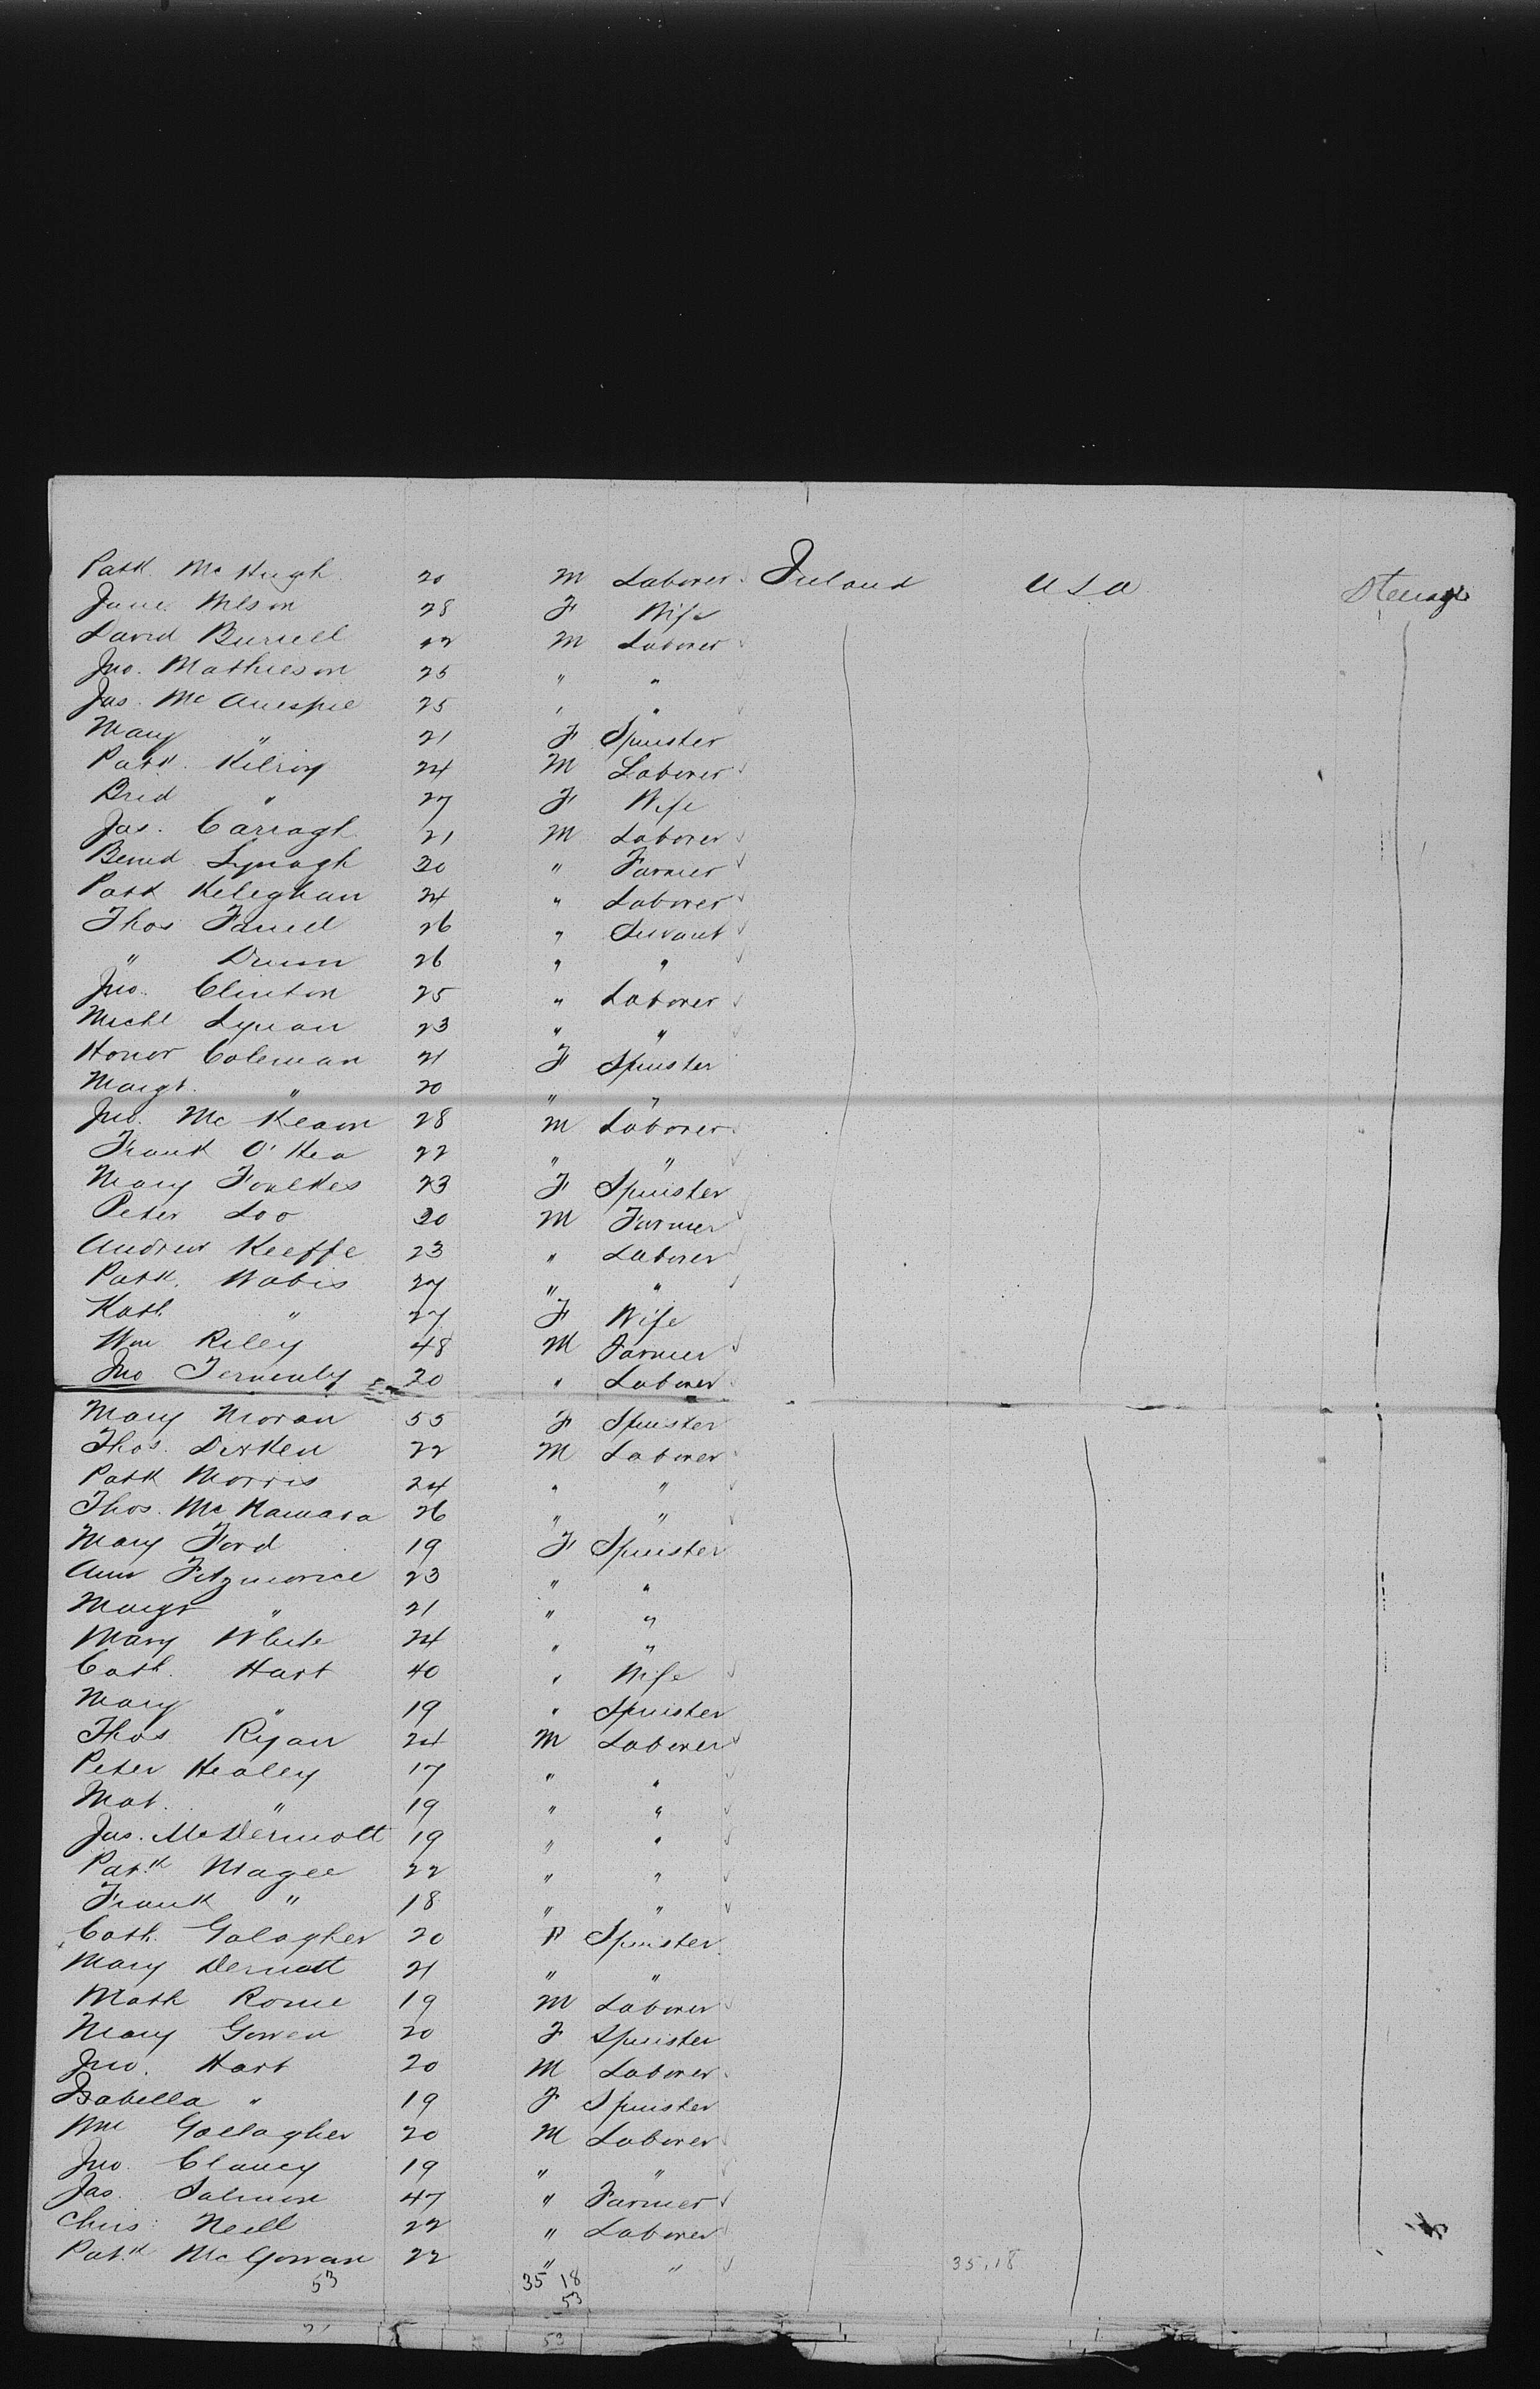 Patk. McHugh 20 M Laborer Ireland USA Steerage
Jane Wilson 28 F Wife
David Burrell 42 M Laborer
Jno. Mathieson 25 " "
Jas. McAnespie 25 " "
Mary " 21 F Spinster
Patk. Kilroy 24 M Laborer
Brid " 27 F Wife
Jas. Carragh 21 M Laborer
Bernd Lynagh 30 " Farmer
Patk Keleghan 24 " Laborer
Thos Farrell 26 " Servant
" Dunn 26 " "
Jno. Clinton 25 " Laborer
Michl Lynan 23 " "
Honor Coleman 21 F Spinster
Margt. " 20 " "
Jno. McKeown 28 M Laborer
Frank O'Kea 22 " "
Mary Foulkes 23 F Spinster
Peter Loo 30 M Farmer
Andrew Keeffe 23 " Laborer
Patk. Nabis 27 " "
Kath " 27 F Wife
Wm Riley 48 M Farmer
Jno 20 " Laborer
Mary Moran 55 F Spinster
Thos. Dirken 22 M Laborer
Patk Morris 24 " "
Thos. McNamara 26 " "
Mary Ford 19 F Spinster
Ann Fitzmorice 23 " "
Margt " 21 " "
Mary White 24 " "
Cath. Hart 40 " Wife
Mary " 19 " Spinster
Thos Ryan 24 M Laborer
Peter Healey 17 " "
Mat. " 19 " "
Jas. McDermott 19 " "
Patk Magee 22 " "
Frank " 18 " "
Cath. Galagher 20 F Spinster
Mary Dermott 21 " "
Math Rorue 19 M Laborer
Mary Gowen 20 F Spinster
Jno. Hart 20 M Laborer
Isabella " 19 F Spinster
Wm Gallagher 20 M Laborer
Jno. Clancy 19 " "
Jas. Salmon 47 " Farmer
Chris: Neill 22 " Laborer
Patk McGowan 22 " "
53 35 18 35.18
53
53